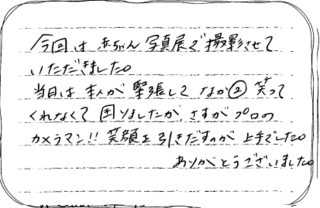 今回は赤ちゃん写真展で撮影させて
いただきました。
当日は本人が緊張してなか②笑って
くれなくて困りましたが さすがプロの
カメラマン!! 笑顔を引きだすのが上手でした。
ありがとうございました。